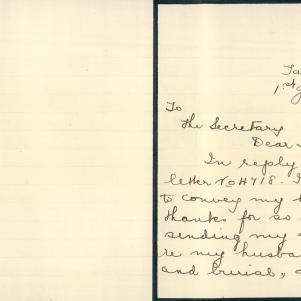 Ta
1st
To
The Secretary
Dear
In reply
letter No 4718. I
to convey my
thanks for so
sending my
re my husba
and burial,